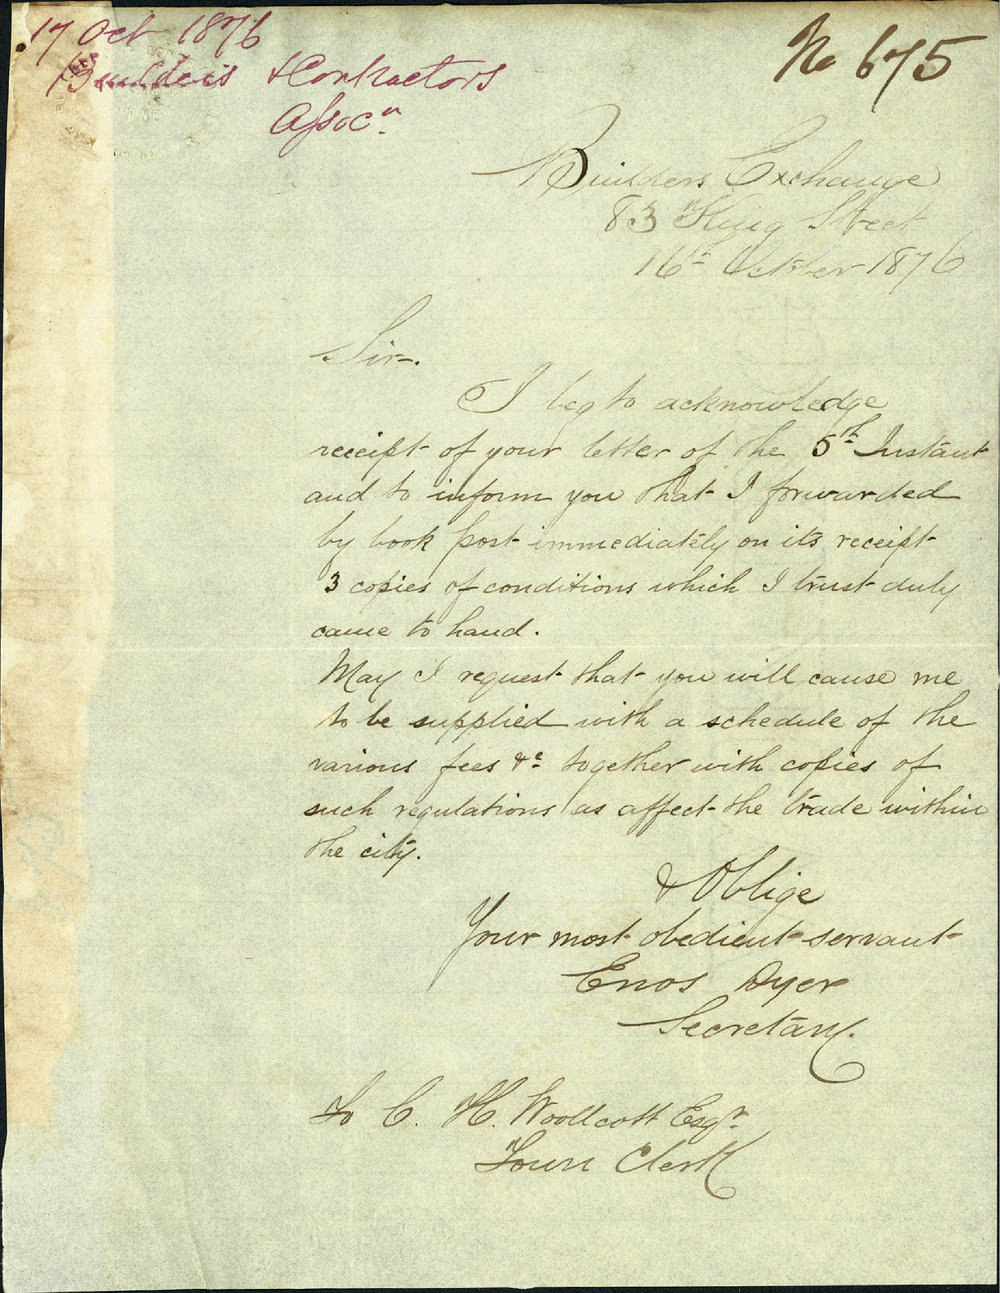 17 Oct 1876
Builders & Contractors
Assocn.
No 675
Builders Exchange
83 King Street
16th October 1876
Sir.
I beg to acknowledge
receipt of your letter of the 5th Instant
and to inform you that I forwarded
by book post immediately on its receipt
3 copies of conditions which I trust duly
came to hand.
May I request that you will cause me
to be supplied with a schedule of the
various fees &c together with copies of
such regulations as affect the trade within
the city.
& Oblige
Your most obedient servant
Enos Dyer
Secretary.
To C. H. Woollcott Esqr.
Town Clerk